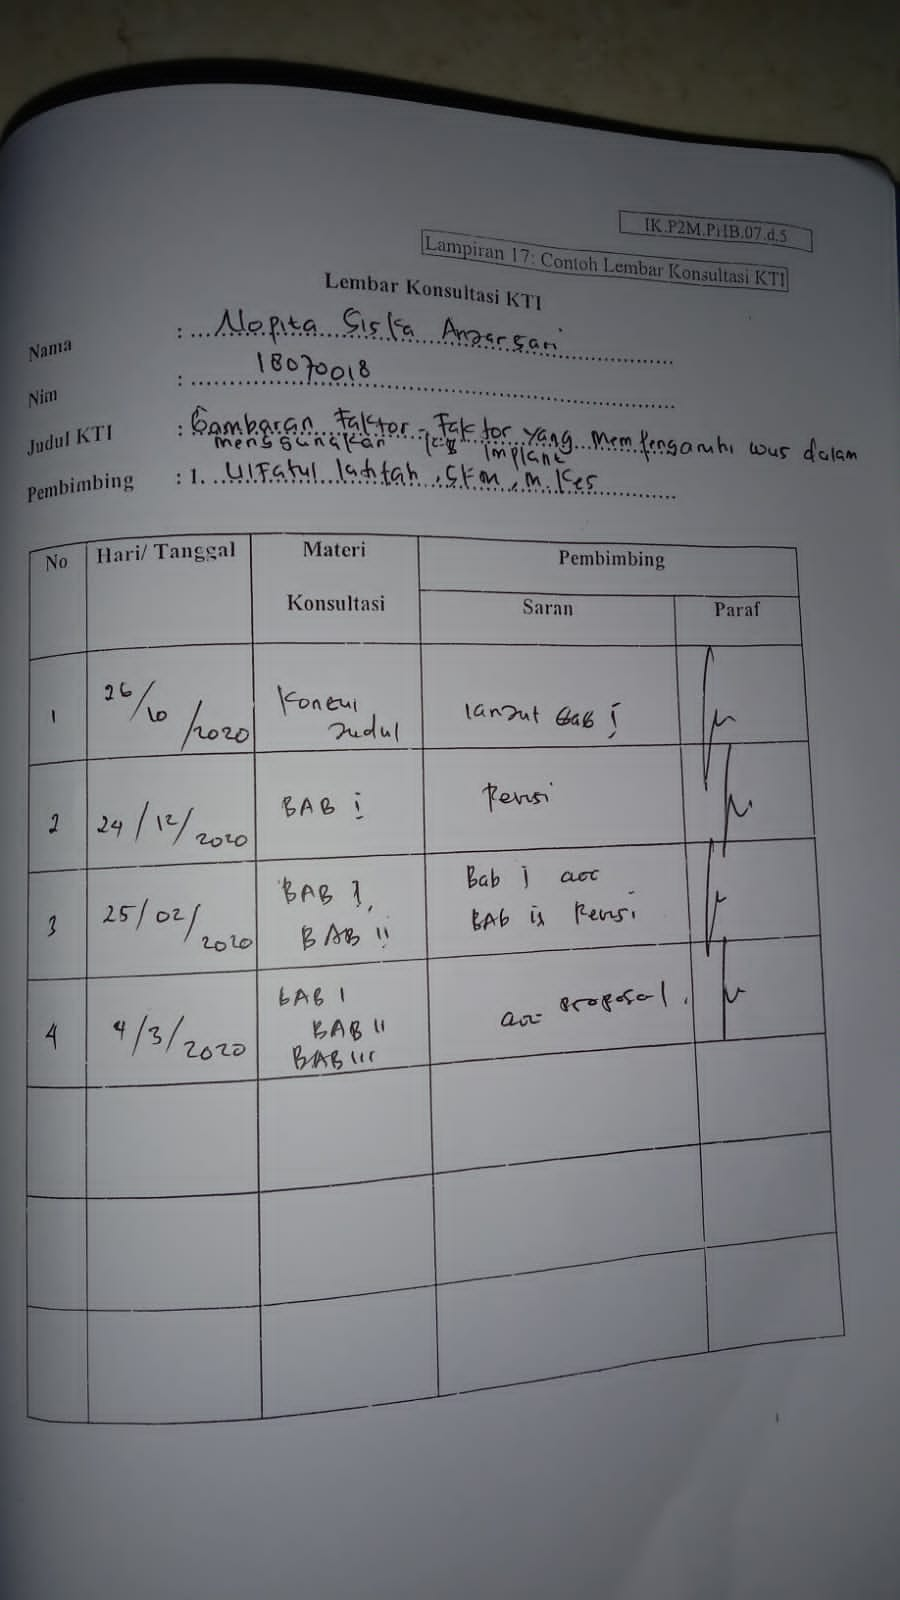 IK.P2M.PHB.07.d.5
Lampiran 17: Contoh Lembar Konsultasi KTI
Lembar Konsultasi KTI
Nama : Nopita Siska Anzarsari
Nim : 18070018
Judul KTI : Gambaran Faktor - Faktor yang Mempengaruhi wus dalam
menggunakan KB Implant
Pembimbing : 1. Ulfatul Latifah, SKM, M.Kes
No Hari/ Tanggal Materi Konsultasi Pembimbing
Saran Paraf
1 26/10/2020 Konsul Judul lanjut Bab I
2 24/12/2020 BAB I Revisi
3 25/02/2020 BAB I, BAB II Bab I acc
BAB II Revisi
4 4/3/2020 BAB I
BAB II
BAB III
acc proposal.